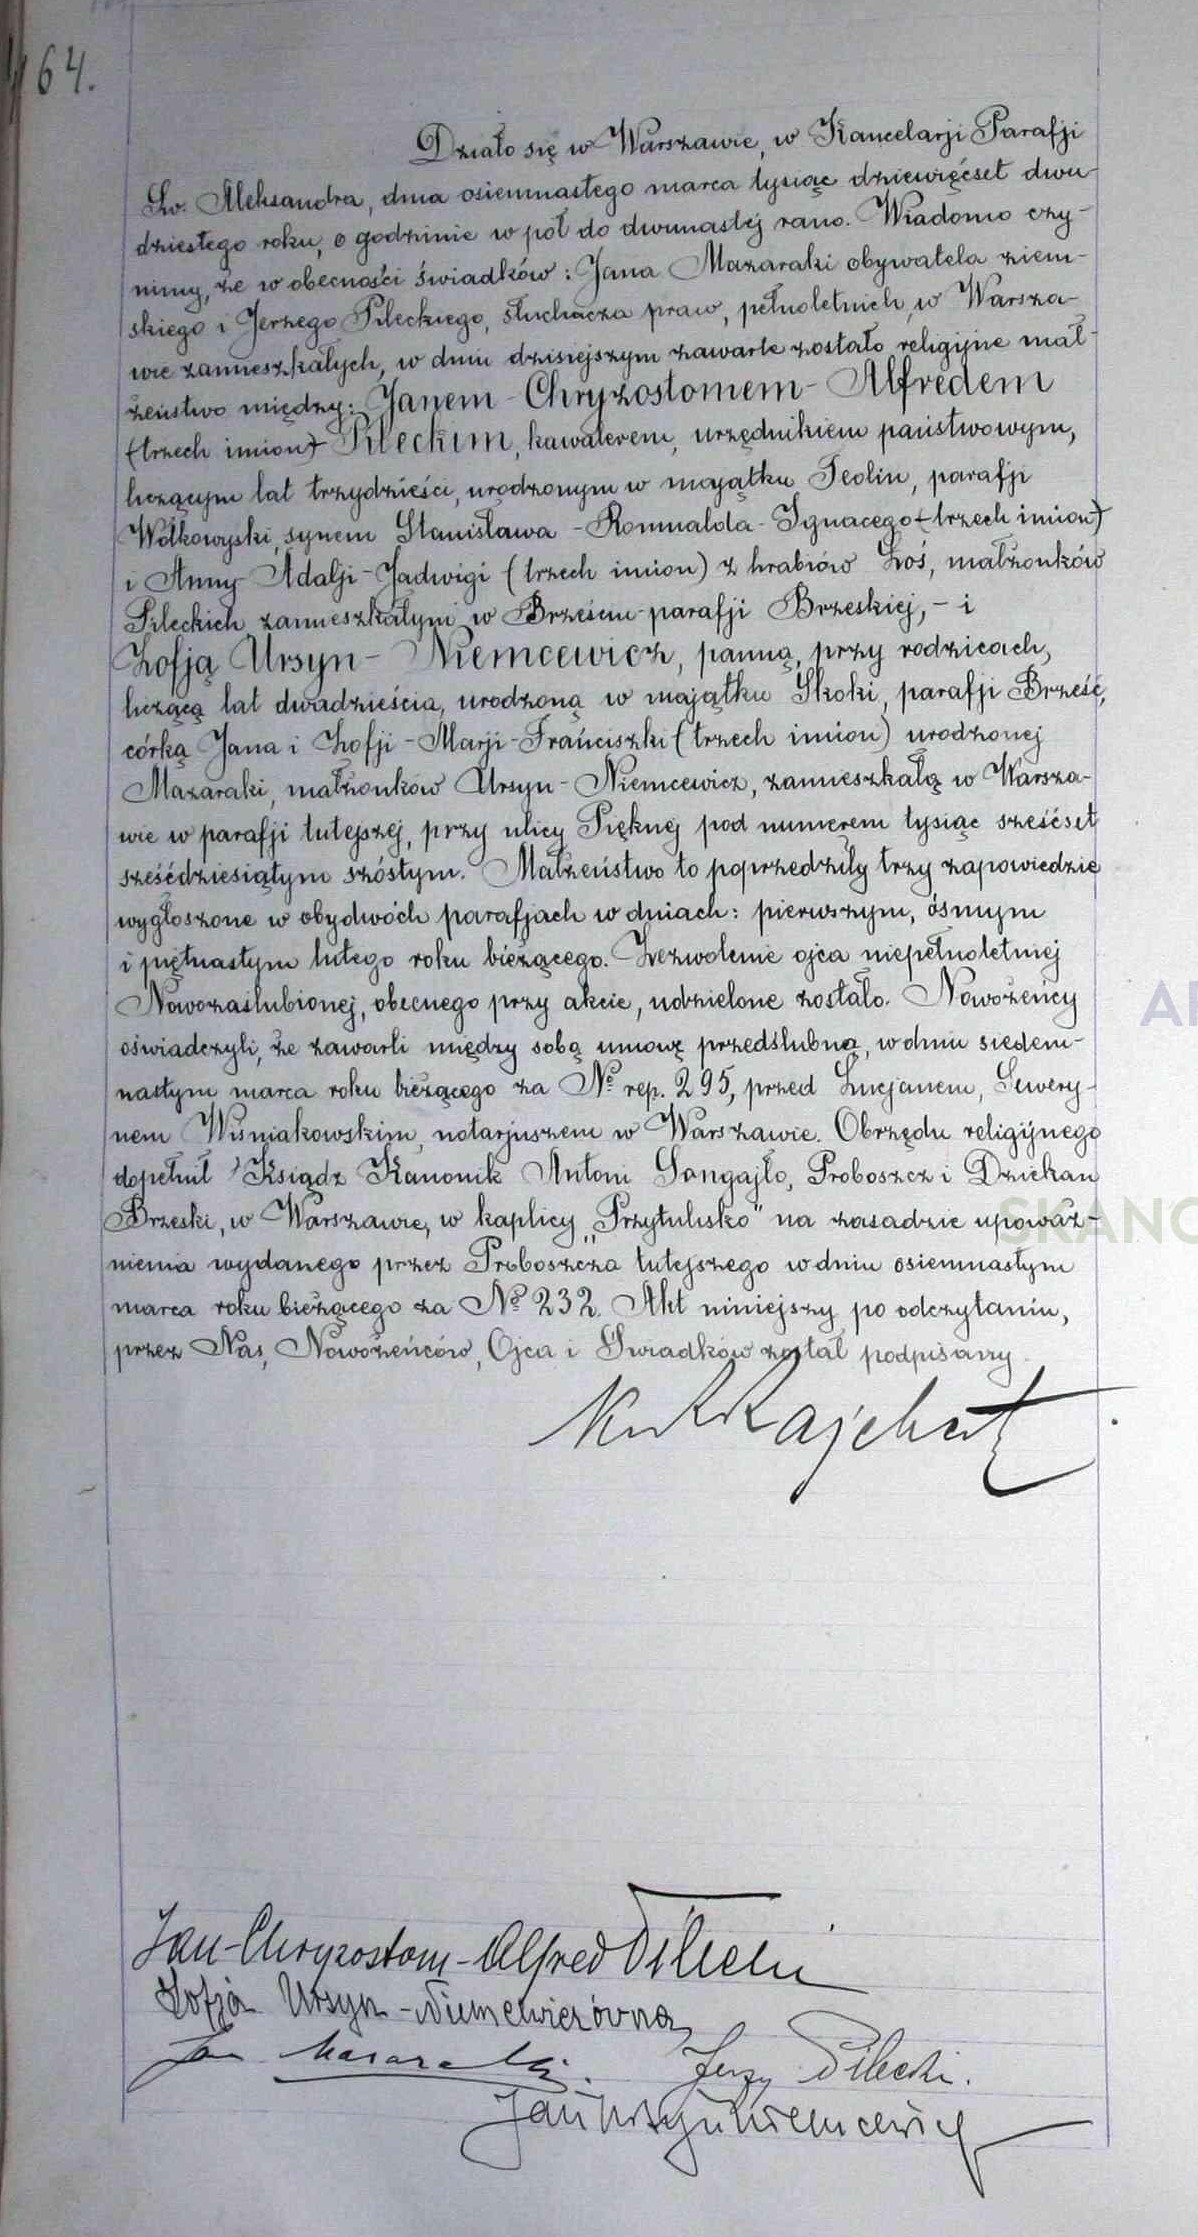 164.
Działo się w Warszawie, w Kancelarji Parafji
Św. Aleksandra, dnia osiemnastego marca tysiąc dziewięćset dwu-
dziestego roku, o godzinie w pół do dwunastej rano. Wiadomo czy-
nimy, że w obecności świadków: Jana Mazaraki obywatela ziem-
skiego i Jerzego Pileckiego, słuchacza praw, pełnoletnich, w Warsza-
wie zamieszkałych, w dniu dzisiejszym zawarte zostało religijne mał-
żeństwo między: Janem-Chryzostomem-Alfredem
(trzech imion) Pileckim, kawalerem, urzędnikiem państwowym,
liczącym lat trzydzieści, urodzonym w majątku Teolin, parafji
Wołkowyski, synem Stanisława-Romualda-Ignacego (trzech imion)
i Anny-Adalji-Jadwigi (trzech imion) z hrabiów Łoś, małżonków
Pileckich zamieszkałym w Brześciu-parafji Brzeskiej, - i
Zofją Ursyn-Niemcewicz, panną, przy rodzicach,
liczącą lat dwadzieścia, urodzoną w majątku Skoki, parafji Brześć,
córką Jana i Zofji-Marji-Franciszki (trzech imion) urodzonej
Mazaraki, małżonków Ursyn-Niemcewicz, zamieszkałą w Warsza-
wie w parafji tutejszej, przy ulicy Pięknej pod numerem tysiąc sześćset
sześćdziesiątym szóstym. Małżeństwo to poprzedziły trzy zapowiedzie
wygłoszone w obydwóch parafjach w dniach: pierwszym, ósmym
i piętnastym lutego roku bieżącego. Zezwolenie ojca niepełnoletniej
Nowozaślubionej, obecnego przy akcie, udzielone zostało. Nowożeńcy
oświadczyli, że zawarli między sobą umowę przedślubną, w dniu siedem-
nastym marca roku bieżącego za № rep. 295, przed Lucjanem, Sewery-
nem Wiśniakowskim, notarjuszem w Warszawie. Obrzędu religijnego
dopełnił Ksiądz Kanonik Antoni Songajło, Proboszcz i Dziekan
Brzeski, w Warszawie, w kaplicy „Przytulisko" na zasadzie upoważ-
nienia wydanego przez Proboszcza tutejszego w dniu osiemnastym
marca roku bieżącego za № 232. Akt niniejszy po odczytaniu,
przez Nas, Nowożeńców, Ojca i Świadków został podpisany.
Jan-Chryzostom-Alfred Pilecki
Zofja Ursyn-Niemcewiczówna
Jan Mazaraki. Jerzy Pilecki.
Jan Ursyn Niemcewicz
A
SKANO